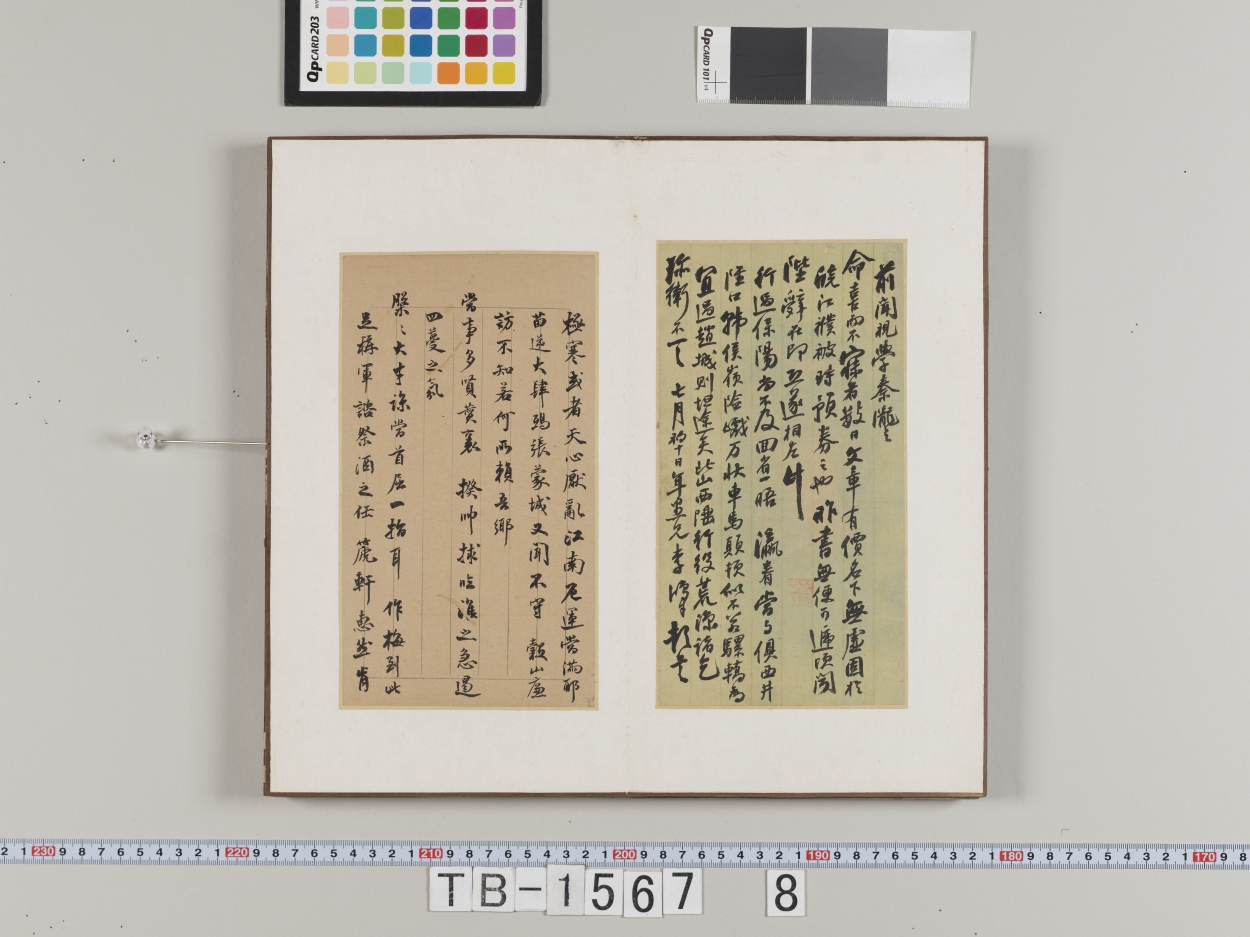 前聞視學秦隴之
命喜而不寐者數日文章有價名下無虛固於
皖江濮被時預券之也 昨書無便可遞頃閱
陛辭在即正遂相左
行過保陽尚不及面省一晤 瀛眷當與俱西井
陘口 侯嶺險巇万狀車馬顛頓似不若騾轎為
宜過趙城則坦途矣此山西陸行役荒 諸乞
珍衛不一一 七月初十日年愚兄李鴻章頓首
極寒或者天心厭亂江南厄運當滿耶
苗逆大肆鴟張蒙城又聞不守 穀山廉
訪不知若何所賴吾鄉
當事多賢黃袁 揆帥救臨淮之急遏
四蔓之氛
槩之大才諒當首屈一指耳 作梅到此
足稱軍諮祭酒之任 篪軒惠然肯
QPCARD 203
QPCARD 101 v4
TB-1567 8
2 1 230 9 8 7 6 5 4 3 2 1 220 9 8 7 6 5 4 3 2 1 210 9 8 7 6 5 4 3 2 1 200 9 8 7 6 5 4 3 2 1 190 9 8 7 6 5 4 3 2 1 180 9 8 7 6 5 4 3 2 1 170 9 8